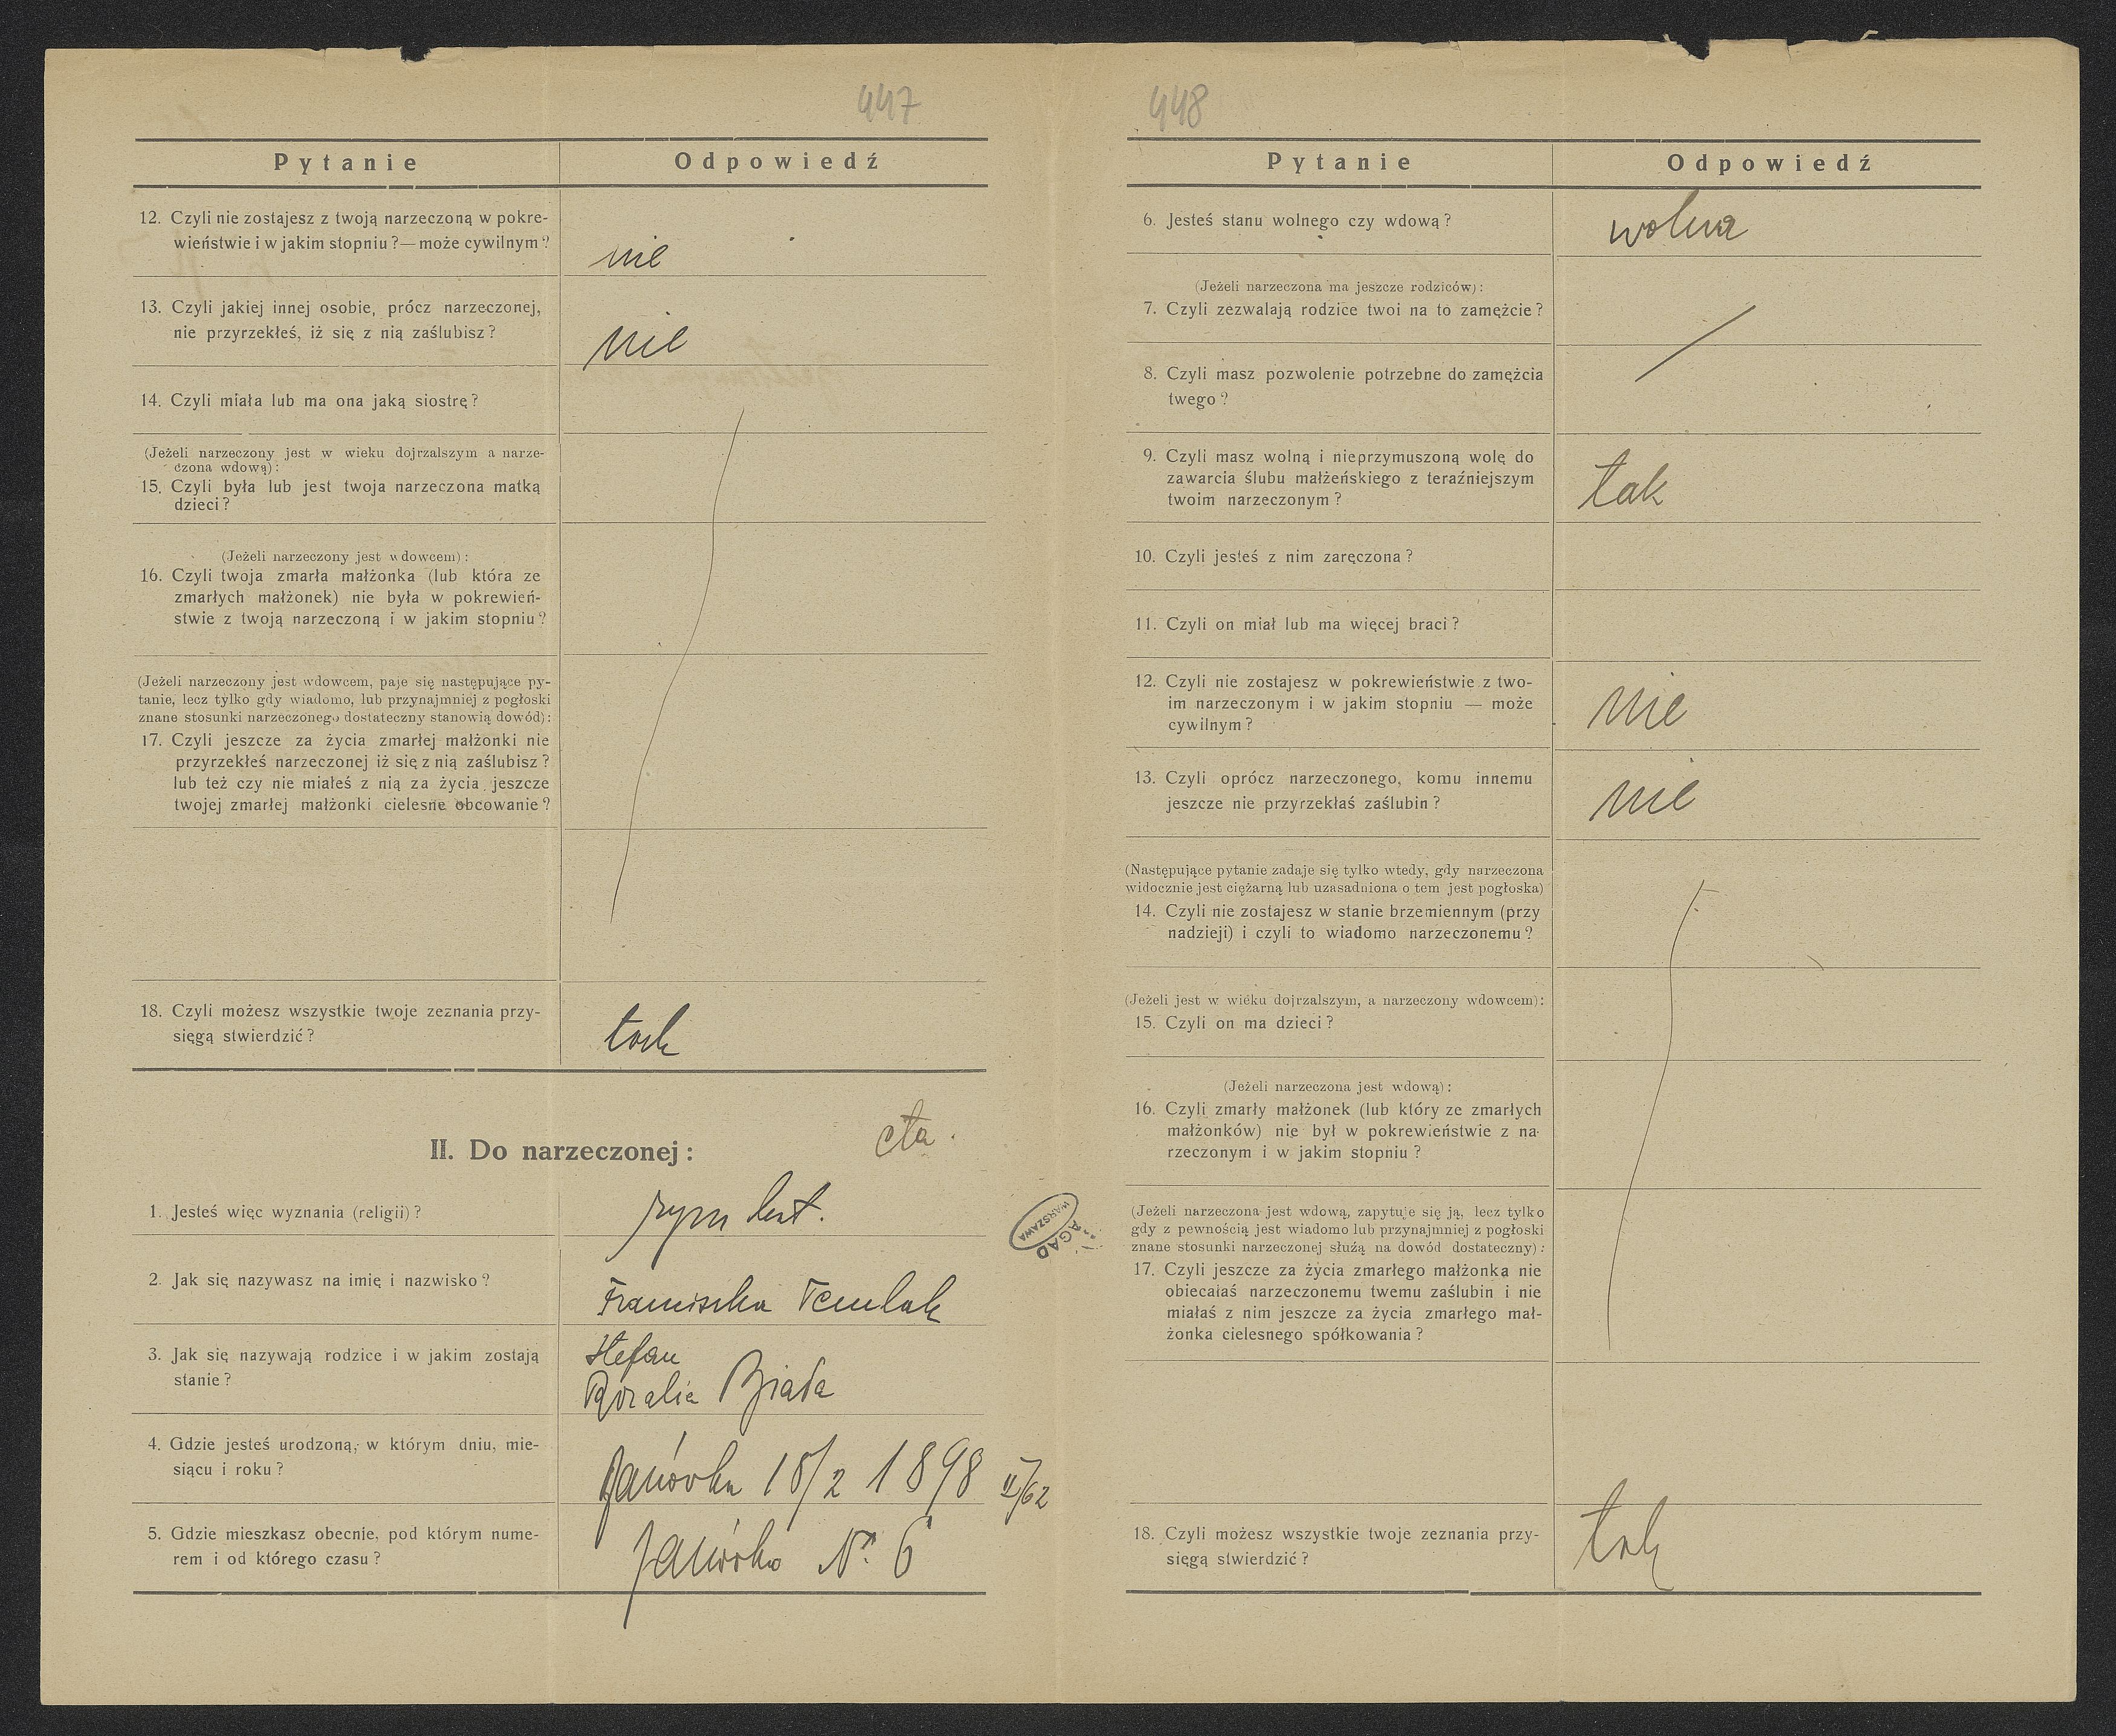 447
Pytanie
Odpowiedź
12. Czyli nie zostajesz z twoją narzeczoną w pokre-
wieństwie i w jakim stopniu?—może cywilnym?
nie
13. Czyli jakiej innej osobie, prócz narzeczonej,
nie przyrzekłeś, iż się z nią zaślubisz?
nie
14. Czyli miała lub ma ona jaką siostrę?
(Jeżeli narzeczony jest w wieku dojrzalszym a narze-
czona wdową):
15. Czyli była lub jest twoja narzeczona matką
dzieci?
(Jeżeli narzeczony jest wdowcem):
16. Czyli twoja zmarła małżonka (lub która ze
zmarłych małżonek) nie była w pokrewień-
stwie z twoją narzeczoną i w jakim stopniu?
(Jeżeli narzeczony jest wdowcem, paje się następujące py-
tanie, lecz tylko gdy wiadomo, lub przynajmniej z pogłoski
znane stosunki narzeczonego dostateczny stanowią dowód):
17. Czyli jeszcze za życia zmarłej małżonki nie
przyrzekłeś narzeczonej iż się z nią zaślubisz?
lub też czy nie miałeś z nią za życia jeszcze
twojej zmarłej małżonki cielesne obcowanie?
18. Czyli możesz wszystkie twoje zeznania przy-
sięgą stwierdzić?
tak
II. Do narzeczonej:
cta.
1. Jesteś więc wyznania (religii)?
rzym kat.
2. Jak się nazywasz na imię i nazwisko?
Franciszka Temlak
3. Jak się nazywają rodzice i w jakim zostają
stanie?
Stefan
Rozalia Biała
4. Gdzie jesteś urodzoną, w którym dniu, mie-
siącu i roku?
Janówka 18/2 1898 II/62
5. Gdzie mieszkasz obecnie, pod którym nume-
rem i od którego czasu?
Janówka Nr. 6
AGAD
WARSZAWA
448
Pytanie
Odpowiedź
6. Jesteś stanu wolnego czy wdową?
wolna
(Jeżeli narzeczona ma jeszcze rodziców):
7. Czyli zezwalają rodzice twoi na to zamężcie?
8. Czyli masz pozwolenie potrzebne do zamężcia
twego?
9. Czyli masz wolną i nieprzymuszoną wolę do
zawarcia ślubu małżeńskiego z teraźniejszym
twoim narzeczonym?
tak
10. Czyli jesteś z nim zaręczona?
11. Czyli on miał lub ma więcej braci?
12. Czyli nie zostajesz w pokrewieństwie z two-
im narzeczonym i w jakim stopniu — może
cywilnym?
nie
13. Czyli oprócz narzeczonego, komu innemu
jeszcze nie przyrzekłaś zaślubin?
nie
(Następujące pytanie zadaje się tylko wtedy, gdy narzeczona
widocznie jest ciężarną lub uzasadniona o tem jest pogłoska)
14. Czyli nie zostajesz w stanie brzemiennym (przy
nadzieji) i czyli to wiadomo narzeczonemu?
(Jeżeli jest w wieku dojrzalszym, a narzeczony wdowcem):
15. Czyli on ma dzieci?
(Jeżeli narzeczona jest wdową):
16. Czyli zmarły małżonek (lub który ze zmarłych
małżonków) nie był w pokrewieństwie z na-
rzeczonym i w jakim stopniu?
(Jeżeli narzeczona jest wdową, zapytuje się ją, lecz tylko
gdy z pewnością jest wiadomo lub przynajmniej z pogłoski
znane stosunki narzeczonej służą na dowód dostateczny):
17. Czyli jeszcze za życia zmarłego małżonka nie
obiecałaś narzeczonemu twemu zaślubin i nie
miałaś z nim jeszcze za życia zmarłego mał-
żonka cielesnego spółkowania?
18. Czyli możesz wszystkie twoje zeznania przy-
sięgą stwierdzić?
tak